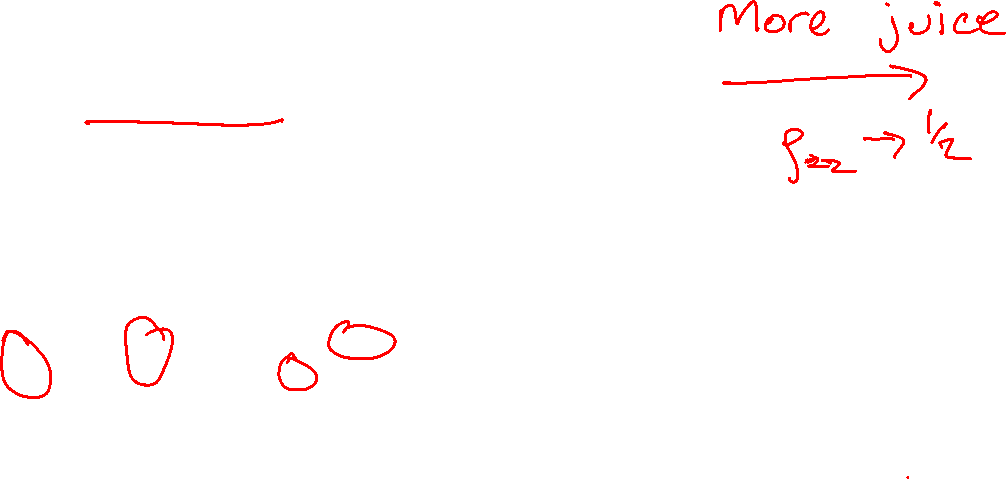 More juice
ρ₂₂ → 1/2